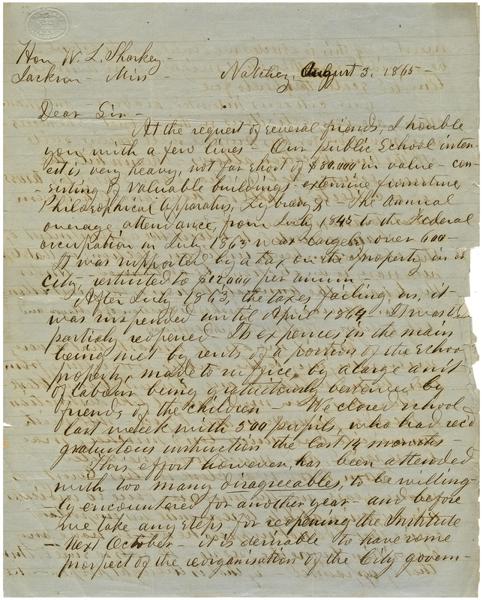 Hon W. L. Sharkey
Jackson - Miss - Natchez, August 3, 1865 -
Dear Sir -
At the request of several friends, I trouble
you with a few lines - Our public School inter-
est is very heavy, not far short of $80.000 in value - con-
sisting of valuable buildings - extensive furniture,
Philosophical Apparatus, Library &c The annual
average attendance, from July 1845 to the Federal
occupation in July 1863 was over 600 -
It was supported by a tax on the Property in a
City, restricted to $12,000 per annum
After July 1863, the taxes failing us, it
was suspended until April 1864. It was
partialy reopened Its expences in the main
being met by rents of a portion of the School
property, made to suffice by a large am't
of labour being gratuitously bestowed by
friends of the children - We closed school
last week with 500 pupils, who had rec'd
gratuitous instruction the last 14 months -
This effort however, has been attended
with too many disagreeables, to be willing-
ly encountered for another year - and before
we take any steps for reopening the Institute
- next October - it is desirable to have some
prospect of the reorganisation of the City govern-